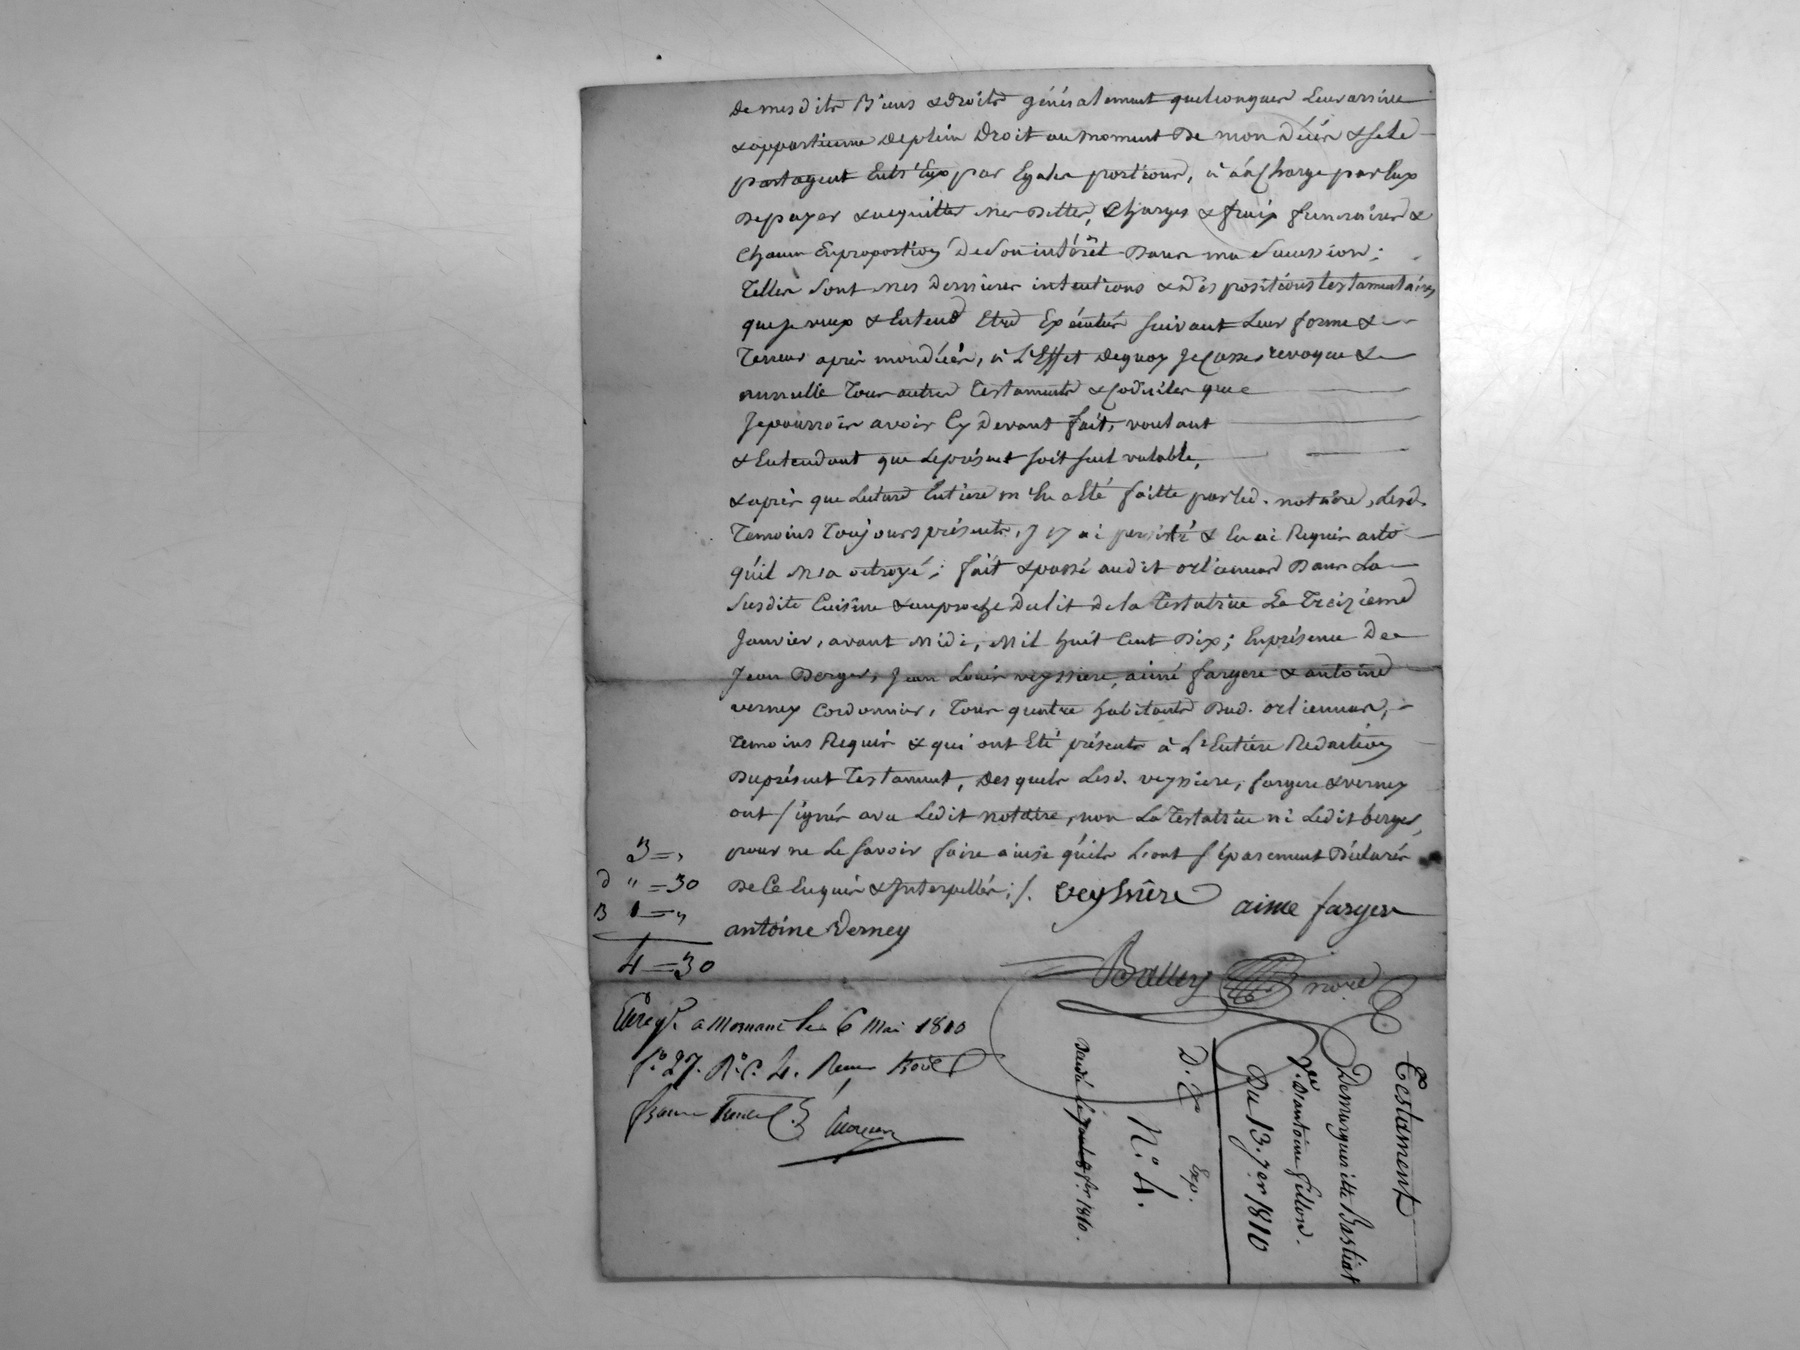 de mesdits Biens & droits généralement quelconques leur arrive
& appartienne de plein Droit au moment de mon décès & se le
partagent Entr'Eux par Egales portions, à la Charge par Eux
de payer & acquitter mes dettes, Charges & fraix funeraires &
Chacun En proportion de Son intérêt dans ma Succession;
Telles Sont mes dernieres intentions & dispositions testamentaires
que je veux & Entend Etre Exécutés suivant Leur forme &
Teneur après mon décès, à L'Effet de quoy Je Casse, revoque &
annulle Tous autres Testaments & Codiciles que
Je pourrois avoir Cy devant fait, voulant
& Entendant que Le présent soit seul valable,
& après que Lecture Entiere m'En a Eté faitte par led. notaire, Lesd.
Temoins Toujours présents, J'y ai persisté & En ai Requis acte
qu'il m'a octroyé; fait & passé audit orlienas dans La
Susdite Cuisine & auproche du lit de la Testatrice Le Treizieme
Janvier, avant Midi, Mil huit Cent Dix; En présence de
Jean Berger, Jean Louis veyssiere, aimé fargere & antoine
verney Cordonnier, Tous quatre habitants dud. orlienas,
Temoins Requis & qui ont Eté présents à L'Entiére Redaction
du présent Testament, desquels Lesd. veyssiere, fargere & verney
ont signés avec Ledit notaire, non La Testatrice ni Ledit berger,
pour ne Le Savoir faire ainsi qu'ils L'ont séparement Déclarés
de Ce Enquis & Interpellés; /. veyssière aime farger
antoine Verney
3 = "
d " = 30
B 1 = "
4 = 30
Balley nore
Enregt. a Mornant le 6 Mai 1810
f° 27. R° C. 4. Recu trois
francs trente C.
Testament
De marguerite Bastiat
Ve. d'antoine fillon.
Du 13. Jer 1810
D. E. Exp.
N.° 4.